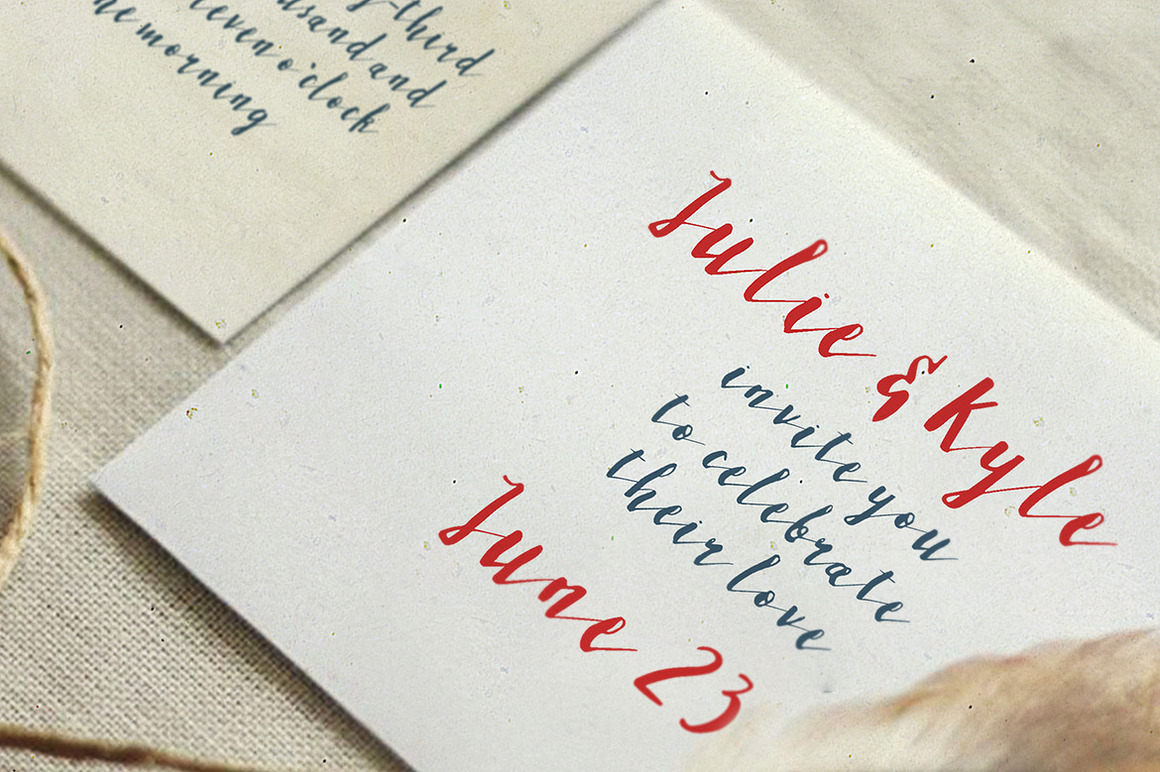 third
and
eleven o'clock
morning
Julie & Kyle
invite you
to celebrate
their love
June 23